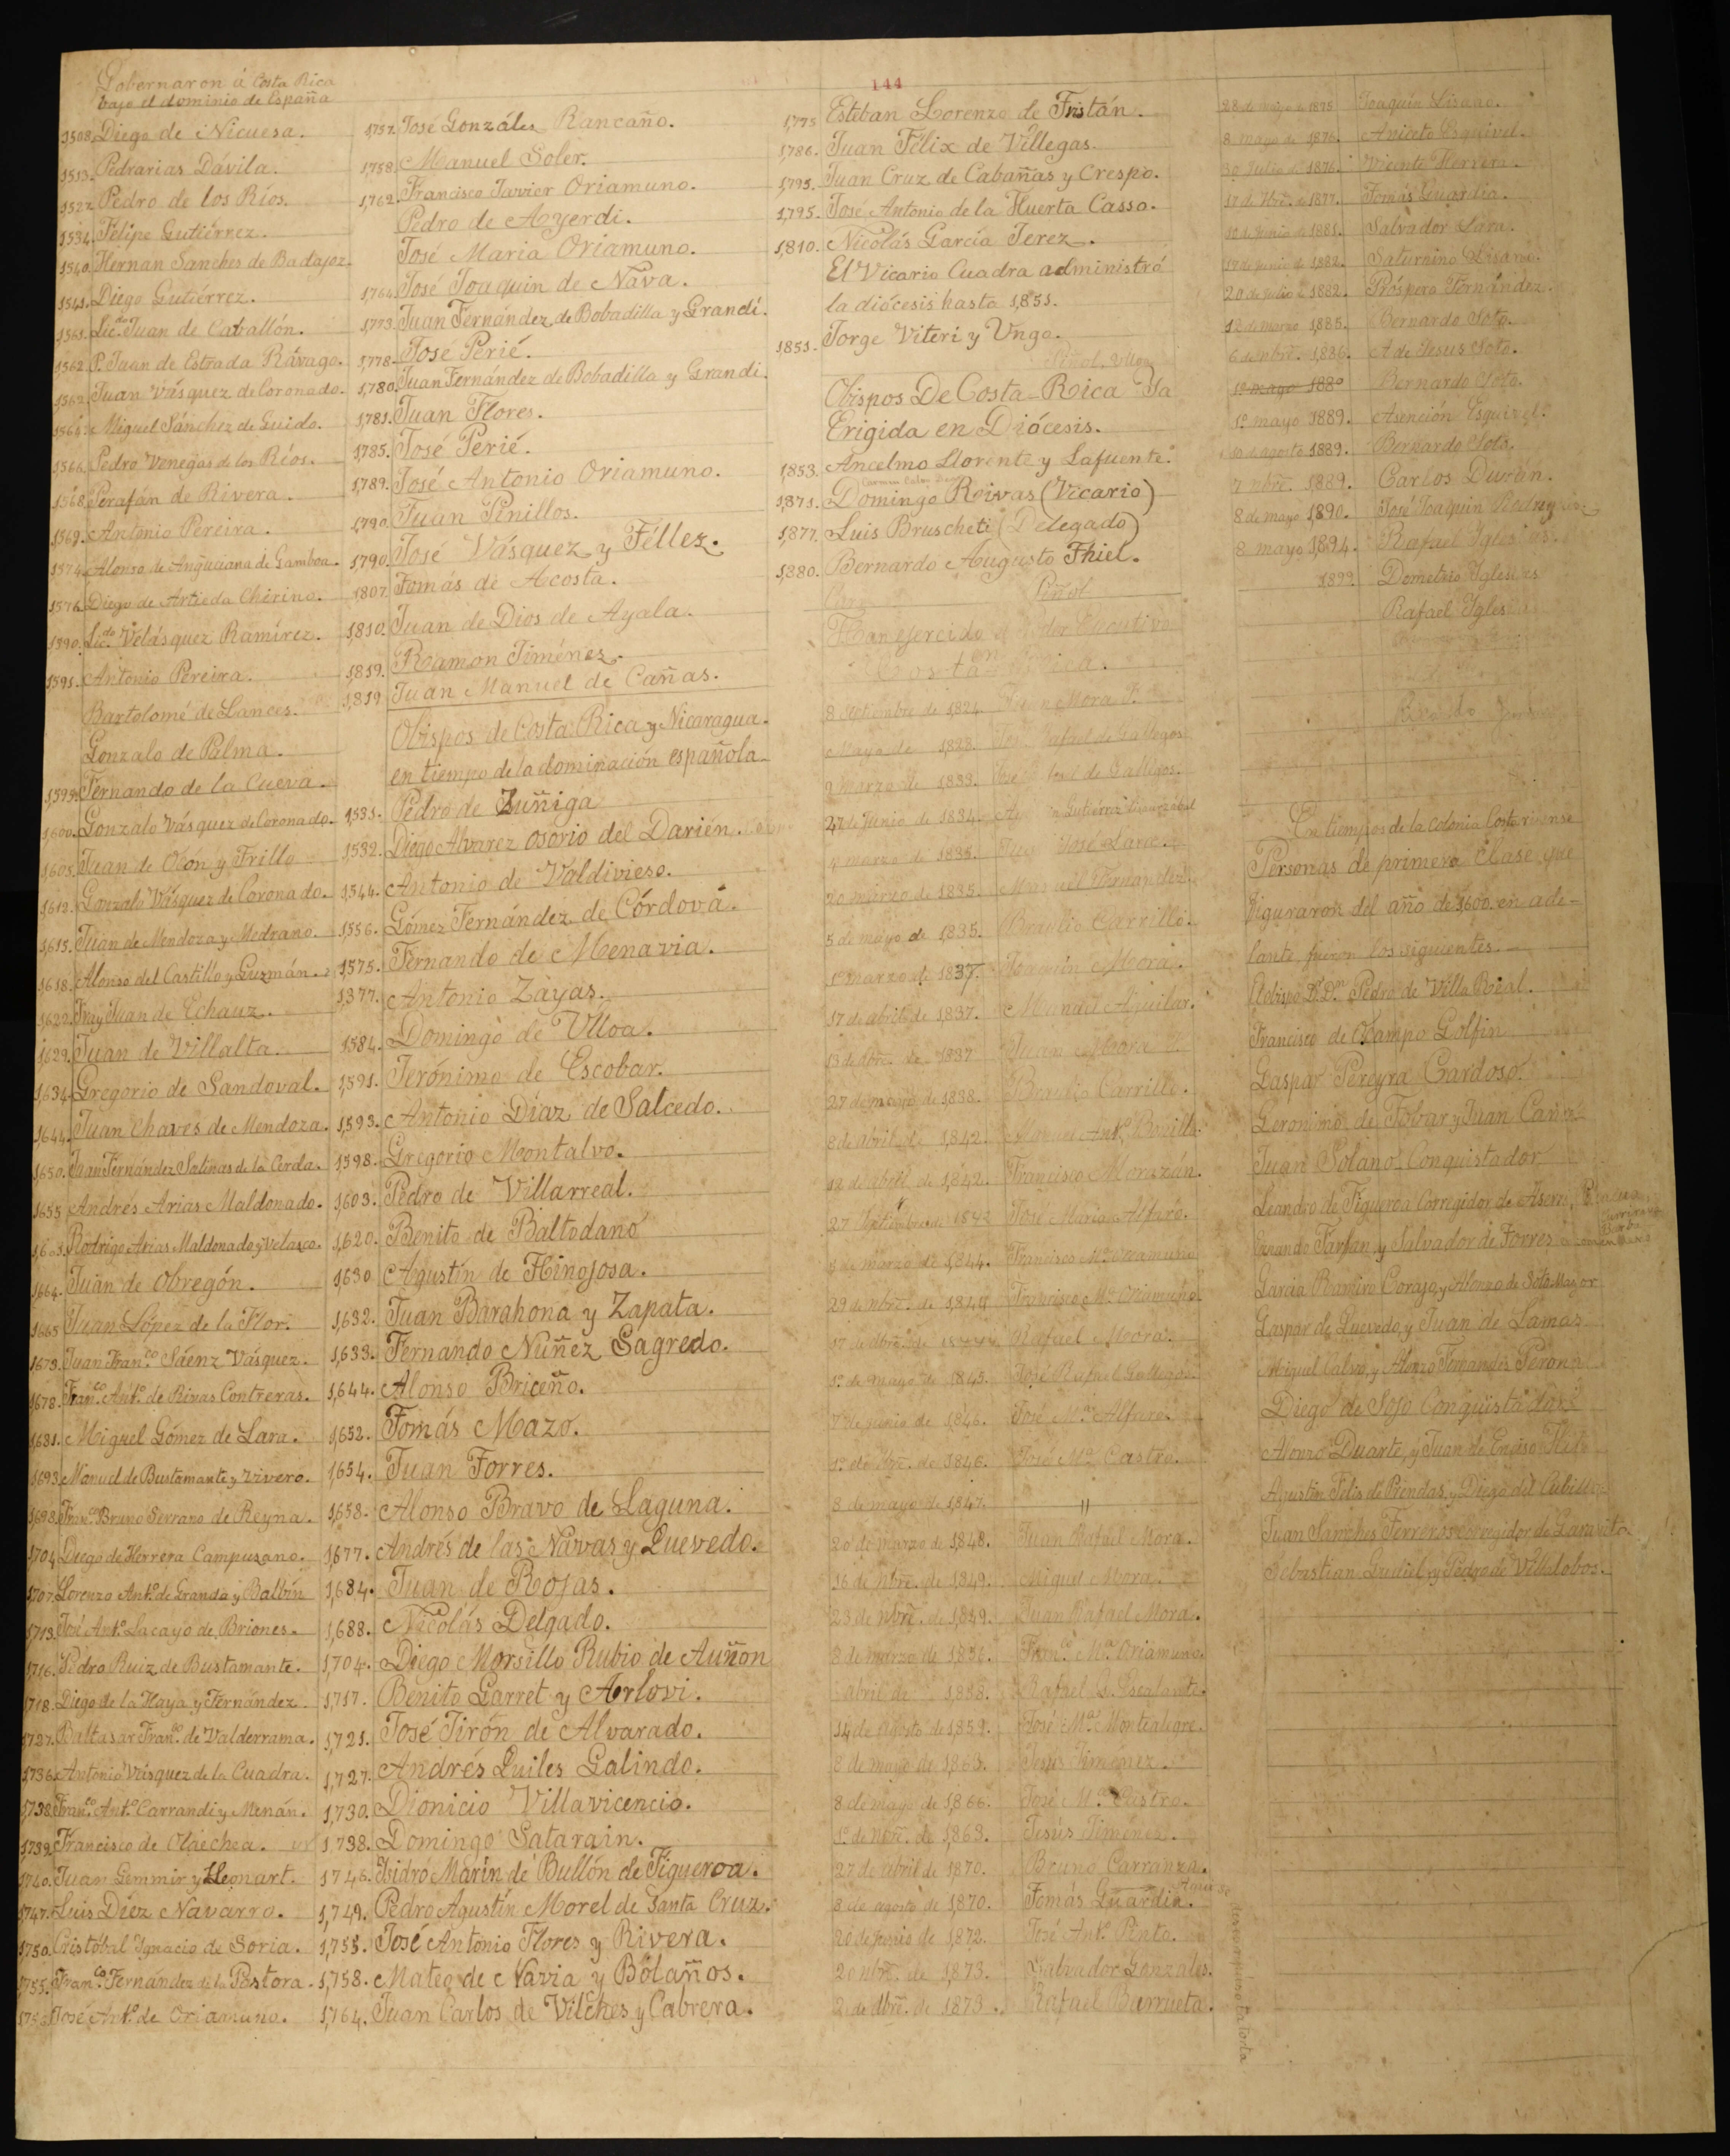 144
Gobernaron á Costa Rica
bajo el dominio de España
1508. Diego de Nicuesa.
1513. Pedrarias Dávila.
1527. Pedro de los Ríos.
1534. Felipe Gutiérrez.
1540. Hernan Sanches de Badajoz.
1541. Diego Gutiérrez.
1561. Licdo. Juan de Caballón.
1562. P. Juan de Estrada Rávago.
1562. Juan Vásquez de Coronado.
1564. Miguel Sánchez de Guido.
1566. Pedro Venegas de los Ríos.
1568. Perafán de Rivera.
1569. Antonio Pereira.
1574. Alonso de Anguciana de Gamboa.
1576. Diego de Artieda Chirino.
1590. Licdo. Velásquez Ramírez.
1591. Antonio Pereira.
Bartolomé de Lances.
Gonzalo de Palma.
1595. Fernando de la Cueva.
1600. Gonzalo Vásquez de Coronado.
1605. Juan de Ocón y Trillo
1612. Gonzalo Vásquez de Coronado.
1615. Juan de Mendoza y Medrano.
1618. Alonso del Castillo y Guzmán.
1622. Fray Juan de Echauz.
1629. Juan de Villalta.
1634. Gregorio de Sandoval.
1644. Juan Chaves de Mendoza.
1650. Juan Fernández Salinas de la Cerda.
1655 Andrés Arias Maldonado.
Rodrigo Arias Maldonado y Velasco.
1664. Juan de Obregón.
1665 Juan López de la Flor.
1673. Juan Franco. Sáenz Vásquez.
1678. Franco. Anto. de Rivas Contreras.
1681. Miguel Gómez de Lara.
1693. Manuel de Bustamante y Vivero.
1698. Franco. Bruno Serrano de Reyna.
1704 Diego de Herrera Campuzano.
1707. Lorenzo Anto. de Granda y Balbín
1713. José Anto. Lacayo de Briones.
1716. Pedro Ruiz de Bustamante.
1718. Diego de la Haya y Fernández
1727. Baltasar Franco. de Valderrama.
1736. Antonio Vásquez de la Cuadra.
1738. Franco. Anto. Carrandi y Menán.
1739. Francisco de Olaechea.
1740. Juan Gemmir y Lleonart.
1747. Luis Díez Navarro.
1750. Cristóbal Ignacio de Soria.
1755. Franco. Fernández de la Pastora.
José Anto. de Oriamuno.
1757. José Gonzáles Rancaño.
1758. Manuel Soler.
1762. Francisco Javier Oriamuno.
Pedro de Ayerdi.
José Maria Oriamuno.
1764. José Joaquin de Nava.
1773. Juan Fernández de Bobadilla y Grandi.
1778. José Perié.
1780. Juan Fernández de Bobadilla y Grandi.
1781. Juan Flores.
1785. José Perié.
1789. José Antonio Oriamuno.
1790. Juan Pinillos.
1790. José Vásquez y Téllez.
1807. Tomás de Acosta.
1810. Juan de Dios de Ayala.
1819. Ramon Jiménez.
1819 Juan Manuel de Cañas.
Obispos de Costa Rica y Nicaragua.
en tiempo de la dominación española
1531. Pedro de Zuñiga
1532. Diego Alvarez Osorio del Darién.
1544. Antonio de Valdivieso.
1556. Gómez Fernández de Córdova.
1575. Fernando de Menavia.
1577. Antonio Zayas.
1584. Domingo de Ulloa.
1591. Jerónimo de Escobar.
1593. Antonio Díaz de Salcedo.
1598. Gregorio Montalvo.
1603. Pedro de Villarreal.
1620. Benito de Baltodano
1630 Agustín de Hinojosa.
1632. Juan Barahona y Zapata.
1633. Fernando Nuñez Sagredo.
1644. Alonso Briceño.
1652. Tomás Mazo.
1654. Juan Torres.
1658. Alonso Bravo de Laguna.
1677. Andrés de las Navas y Quevedo.
1684. Juan de Rojas.
1688. Nicolás Delgado.
1704. Diego Morsillo Rubio de Auñon
1717. Benito Garret y Arlovi.
1721. José Jirón de Alvarado.
1727. Andrés Quiles Galindo.
1730. Dionicio Villavicencio.
1738. Domingo Satarain.
1746. Isidro Marín de Bullón de Figueroa.
1749. Pedro Agustín Morel de Santa Cruz.
1753. José Antonio Flores y Rivera.
1758. Mateo de Navia y Bolaños.
1764. Juan Carlos de Vilches y Cabrera.
1775 Esteban Lorenzo de Tristán.
1786. Juan Félix de Villegas.
1795. Juan Cruz de Cabañas y Crespo.
1795. José Antonio de la Huerta Casso.
1810. Nicolás García Jerez.
El Vicario Cuadra administró
la diócesis hasta 1,851.
1851. Jorge Viteri y Ungo.
Obispos De Costa-Rica Ya
Erigida en Diócesis.
1853. Ancelmo Llorente y Lafuente.
1871. Domingo Rivas (Vicario)
1877. Luis Bruscheti (Delegado)
1880. Bernardo Augusto Thiel.
Han ejercido el Poder Ejecutivo
en
Costa Rica.
8 Septiembre de 1824 Juan Mora F.
Mayo de 1828. José Rafael de Gallegos
9 marzo de 1833. José Rafael de Gallegos.
27 de Junio de 1834. Gutiérrez
4 marzo de 1835. Juan José Lara.
20 marzo de 1835. Manuel Fernández.
5 de mayo de 1835. Braulio Carrillo.
1º marzo de 1837. Joaquín Mora.
17 de abril de 1837. Manuel Aguilar.
13 de dbre. de 1837 Juan Mora F.
27 de mayo de 1838. Braulio Carrillo.
8 de abril de 1842. Manuel Anto. Bonilla.
12 de abril de 1842. Francisco Morazán.
27 Septiembre de 1842 José María Alfaro.
marzo de 1844. Francisco Ma. Oreamuno
29 de nbre. de 1844 Francisco Ma. Oriamuno
17 de dbre. de 1844 Rafael Moora.
1º de mayo de 1845. José Rafael Gallegos.
7 de junio de 1846. José Ma. Alfaro.
1º de dbre. de 1846. José Ma. Castro.
8 de mayo de 1847. "
20 de marzo de 1848. Juan Rafael Mora.
16 de nbre. de 1849. Miguel Mora.
23 de nbre. de 1849. Juan Rafael Mora.
8 de marzo de 1856. Franco. Ma. Oriamuno.
abril de 1858. Rafael G. Escalante.
14 de agosto de 1859. José Ma. Montealegre.
8 de mayo de 1863. Jesús Jimenez.
8 de mayo de 1866. José Ma. Castro.
1º de nbre. de 1863. Jesús Jiménez.
27 de abril de 1870. Bruno Carranza.
8 de agosto de 1870. Tomás Guardia.
20 de junio de 1872. José Anto. Pinto.
20 nbre. de 1873. Salvador Gonzáles.
2 de dbre. de 1873. Rafael Barrueta.
28 de mayo de 1875 Joaquín Lisano.
8 mayo de 1876. Aniceto Esquivel.
30 Julio de 1876. Vicente Herrera.
17 de 1877. Tomás Guardia.
10 de Junio de 1881. Salvador Lara.
de junio de 1882. Saturnino Lisano.
20 de Julio de 1882. Próspero Fernández.
12 de marzo 1885. Bernardo Soto.
6 de nbre. 1886. A de Jesus Soto.
Bernardo Soto.
1º mayo 1889. Asención Esquivel.
10 de agosto 1889. Bernardo Soto.
7 nbre. 1889. Carlos Durán.
8 de mayo 1890. José Joaquin Rodriguez
8 mayo 1894. Rafael Iglesias.
1899 Demetrio Iglesias
Rafael Igles
En tiempos de la Colonia Costarisense
Personas de primera Clase que
figuraron del año de 1600. en ade-
lante fueron los siguientes.
El obispo Dr. Dn. Pedro de Villa Rial.
Francisco de Ocampo Golfin
Gaspar Pereyra Cardoso.
Geronimo de Tobar y Juan
Juan Solano Conquistador
Leandro de Figueroa Corregidor de Aserri,
Farfan y Salvador de Torres
Garcia Ramiro Corajo, y Alonzo de Sotomayor
Gaspar de Quevedo, y Juan de Lamas
Miguel Calvo, y Alonzo Fernandes Perona
Diego de Sojo Conquistador
Alonzo Duarte, y Juan de Enciso
Agustin Felis de Prendas y Diego del Cubillo
Juan Sanches Ferreros corregidor de Garavito.
Sebastian Gudiel, y Pedro de Villalobos.